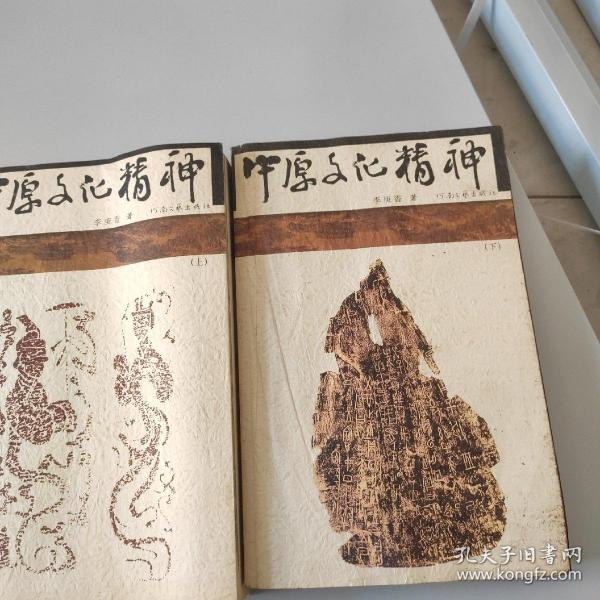 中原文化精神
李庚香 著 河南文艺出版社
(上)
中原文化精神
李庚香 著 河南文艺出版社
(下)
孔夫子旧书网
www.kongfz.com